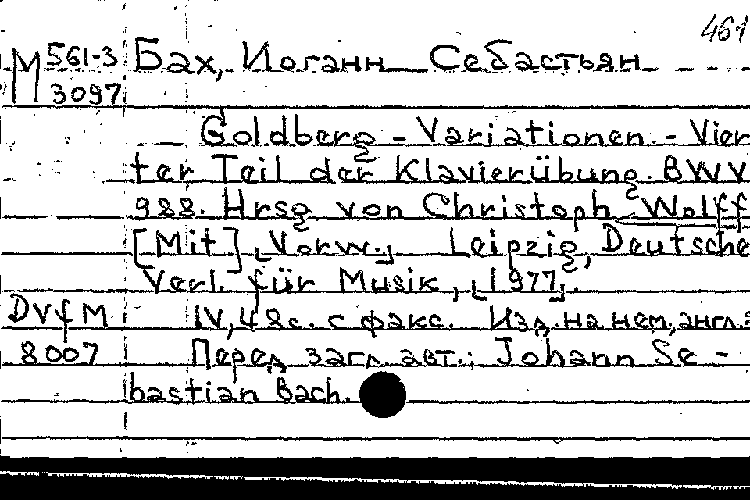 461
М 561-3 Бах, Иоганн Себастьян
3097
Goldberg - Variationen. - Vier-
ter Teil der Klavierübung. BWV
988. Hrsg von Christoph Wolff
[Mit] Vorw. Leipzig, Deutsche
Verl. für Musik, [1977].
DVfM IV, 48с. с факс. Изд. на нем., англ. я
8007 Перед загл. авт.: Johann Se-
bastian Bach.